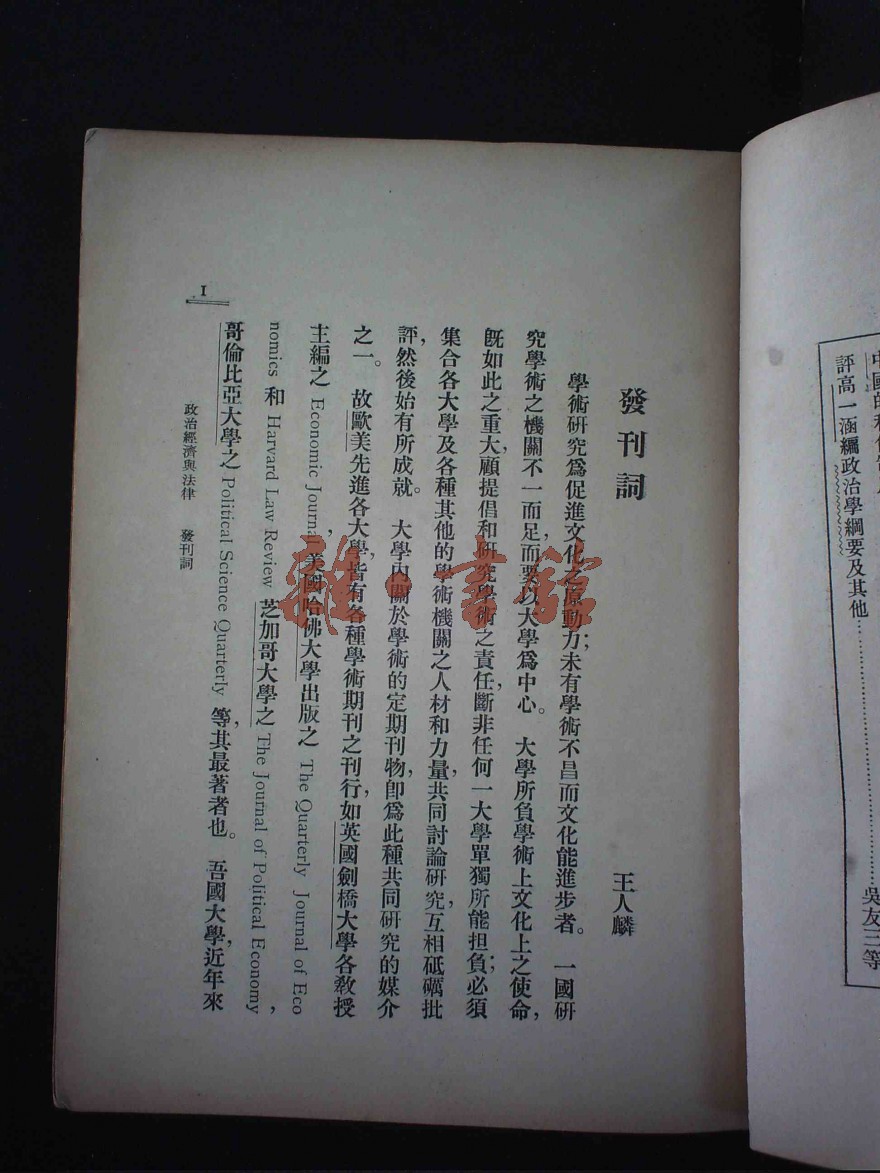 發刊詞
王人麟
學術研究爲促進文化之原動力;未有學術不昌而文化能進步者。一國研
究學術之機關不一而足,而要以大學爲中心。大學所負學術上文化上之使命,
旣如此之重大,顧提倡和研究學術之責任,斷非任何一大學單獨所能担負;必須
集合各大學及各種其他的學術機關之人材和力量,共同討論研究,互相砥礪批
評,然後始有所成就。大學內關於學術的定期刊物,卽爲此種共同研究的媒介
之一。故歐美先進各大學,皆有各種學術期刊之刊行,如英國劍橋大學各敎授
主編之 Economic Journal, 美國哈佛大學出版之 The Quarterly Journal of Eco
nomics 和 Harvard Law Review 芝加哥大學之 The Journal of Political Economy,
哥倫比亞大學之 Political Science Quarterly 等,其最著者也。吾國大學,近年來
政治經濟與法律 發刊詞
1
評高一涵編政治學綱要及其他……吳友三等
雜·書館